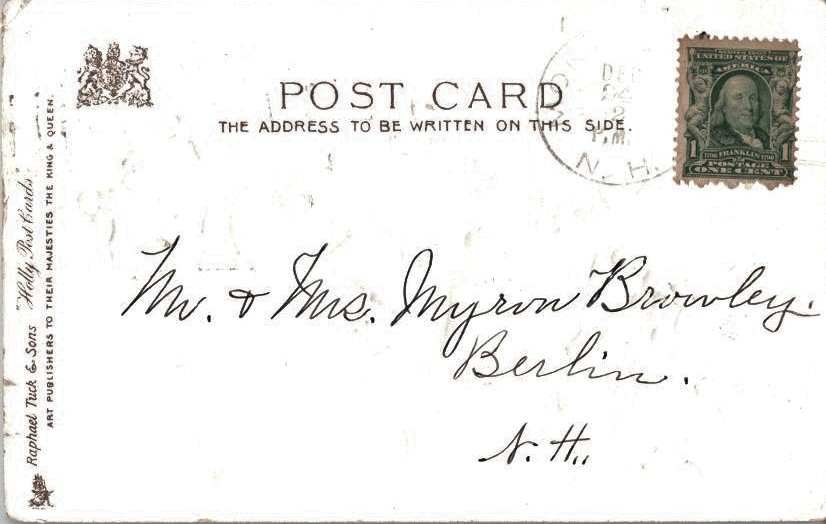 POST CARD
THE ADDRESS TO BE WRITTEN ON THIS SIDE.
DEC
24
2
P.M.
N. H.
UNITED STATES OF
AMERICA
1 FRANKLIN 1
POSTAGE
ONE CENT
Mr. & Mrs. Myron Browley.
Berlin.
N. H.
Raphael Tuck & Sons "Holly Post Cards"
ART PUBLISHERS TO THEIR MAJESTIES THE KING & QUEEN.